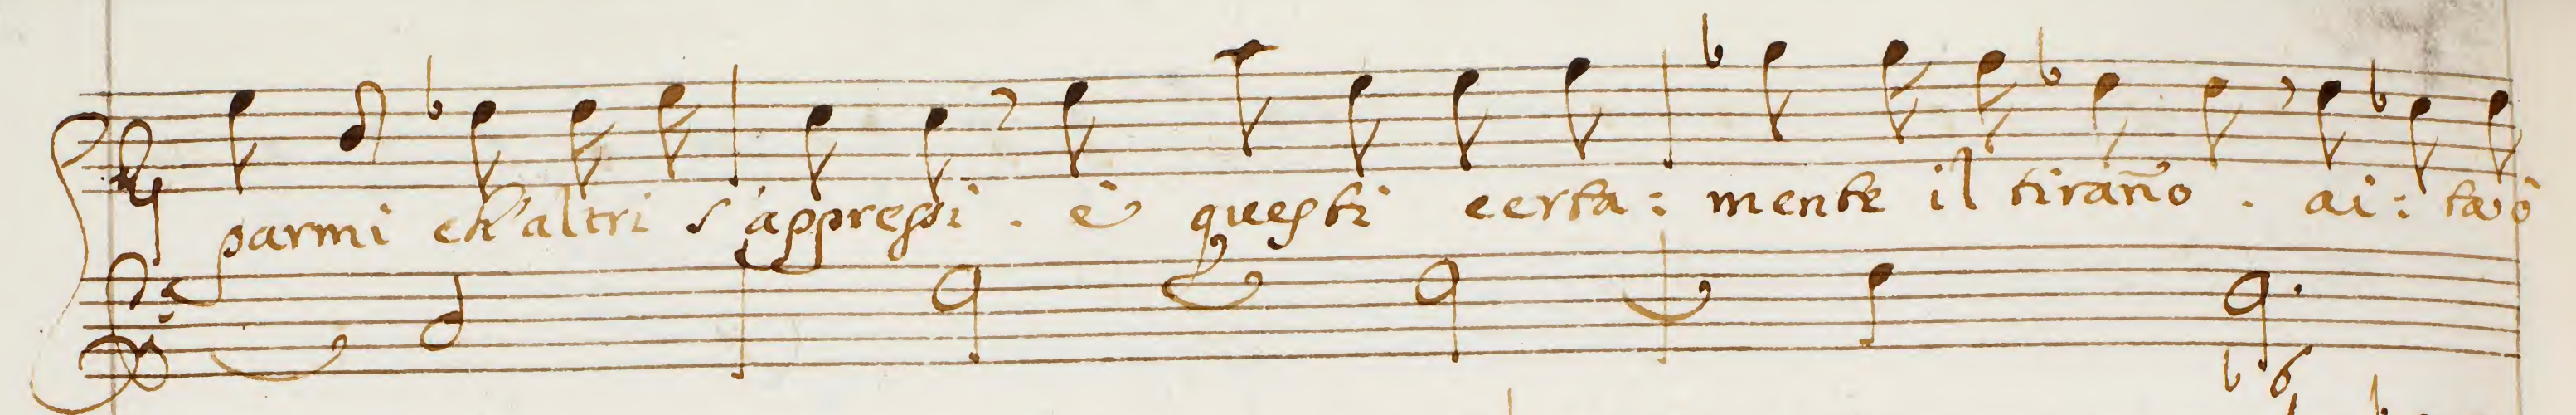 parmi ch'altri s'appressi . è questi certa: mente il tiran̄o . ai: ta ò
b 6